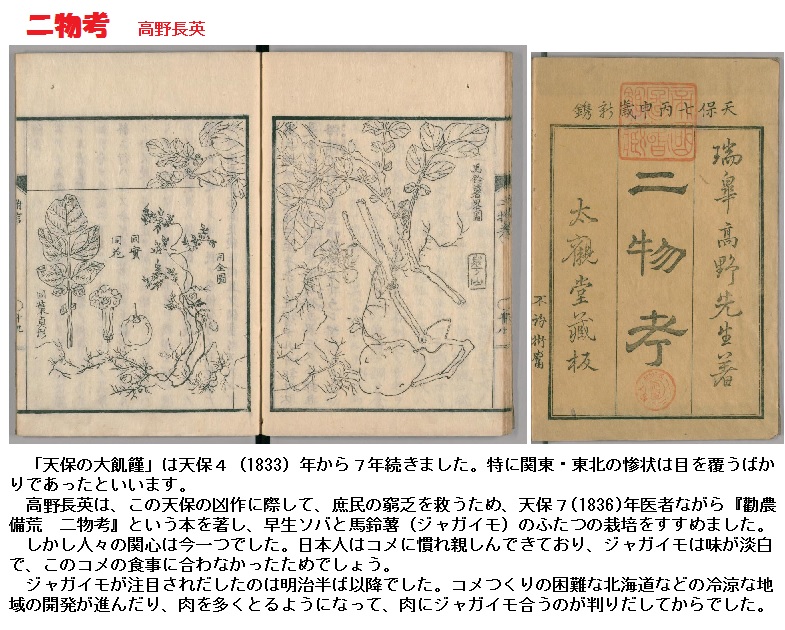 二物考 高野長英
馬鈴薯畧圖
同全圖
同實
同花
同葉眞形
天保七丙申歳新鐫
瑞皐高野先生著
二物考
大觀堂藏板
「天保の大飢饉」は天保4(1833)年から7年続きました。特に関東・東北の惨状は目を覆うばか
りであったといいます。
高野長英は、この天保の凶作に際して、庶民の窮乏を救うため、天保7(1836)年医者ながら『勸農
備荒 二物考』という本を著し、早生ソバと馬鈴薯(ジャガイモ)のふたつの栽培をすすめました。
しかし人々の関心は今一つでした。日本人はコメに慣れ親しんできており、ジャガイモは味が淡白
で、このコメの食事に合わなかったためでしょう。
ジャガイモが注目されだしたのは明治半ば以降でした。コメつくりの困難な北海道などの冷涼な地
域の開発が進んだり、肉を多くとるようになって、肉にジャガイモ合うのが判りだしてからでした。